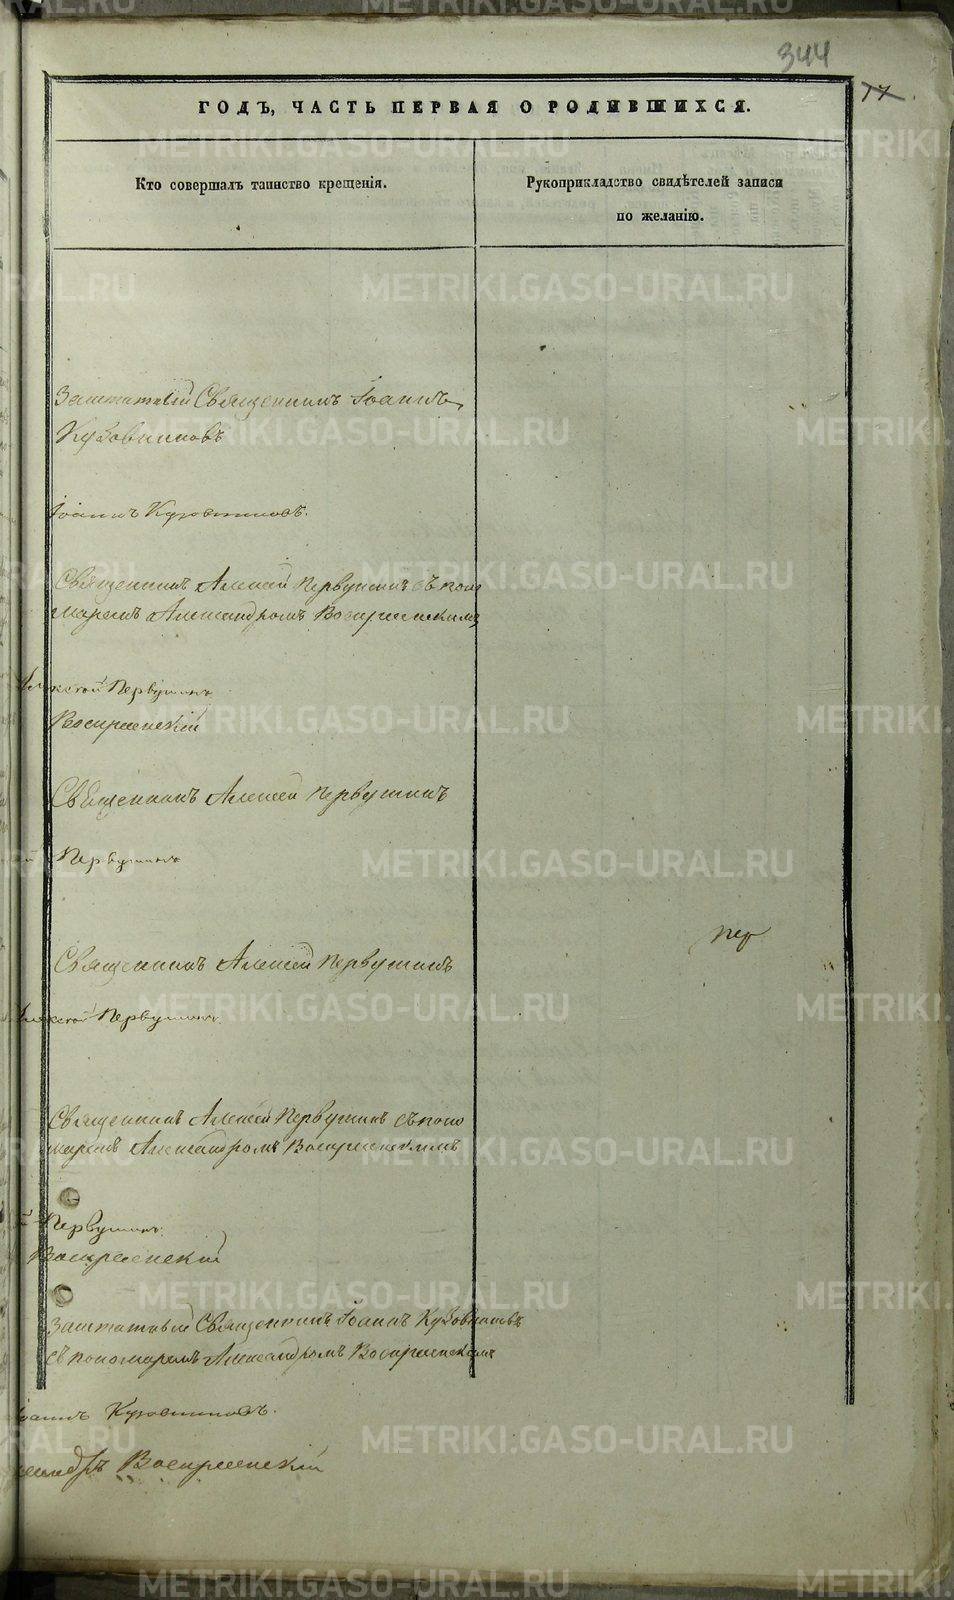 344
17
ГОДЪ, ЧАСТЬ ПЕРВАЯ О РОДИВШИХСЯ.
Кто совершалъ таинство крещенія.
Рукоприкладство свидѣтелей записи
по желанію.
Заштатный Священникъ Іоаннъ
Кузовниковъ
Іоаннъ Кузовниковъ.
Священникъ Алексей Первушинъ съ поно
маремъ Александромъ Воскресенскимъ
Алексей Первушинъ
Воскресенскій
Священникъ Алексей Первушинъ
Первушинъ
Священникъ Алексей Первушинъ
Алексей Первушинъ.
Священникъ Алексей Первушинъ съ поно
маремъ Александромъ Воскресенскимъ
Первушинъ.
Воскресенскій
Заштатный Священникъ Іоаннъ Кузовниковъ
съ пономаремъ Александромъ Воскресенскимъ
Іоаннъ Кузовниковъ.
Воскресенскій
METRIKI.GASO-URAL.RU